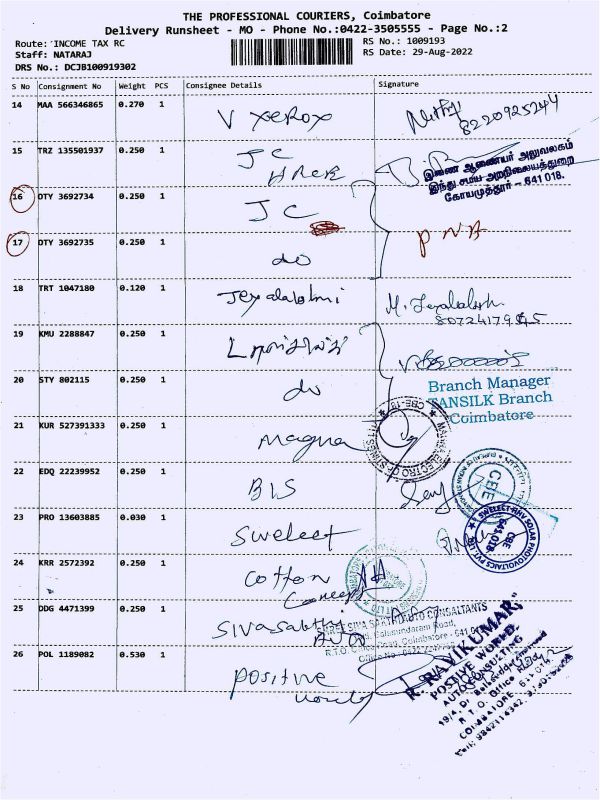 THE PROFESSIONAL COURIERS, Coimbatore
Delivery Runsheet - MO - Phone No.:0422-3505555 - Page No.:2
Route: INCOME TAX RC
RS No.: 1009193
Staff: NATARAJ
RS Date: 29-Aug-2022
DRS No.: DCJB100919302
S No Consignment No Weight PCS Consignee Details Signature
14 MAA 566346865 0.270 1 V xerox
8220925244
15 TRZ 135501937 0.250 1 JC
HRCE
இணை ஆணையர் அலுவலகம்
இந்து சமய அறநிலையத்துறை
கோயமுத்தூர் - 641 018.
16 DTY 3692734 0.250 1 JC
PNA
17 DTY 3692735 0.250 1 do
18 TRT 1047180 0.120 1
19 KMU 2288847 0.250 1
20 STY 802115 0.250 1 do
Branch Manager
TANSILK Branch
Coimbatore
21 KUR 527391333 0.250 1 Magna
22 EDQ 22239952 0.250 1 BIS
23 PRO 13603885 0.030 1 Swelect
SWELECT-HHV SOLAR PHOTOVOLTAICS PVT LTD
CBE
641 018
24 KRR 2572392 0.250 1 Cotton
Concept
25 DDG 4471399 0.250 1
SIVA SAKTHI AUTO CONSULTANTS
26 POL 1189082 0.530 1 Positive
World
R. RAVIKUMAR,
POSTIVE WORLD
AUTOCONSULTING
R.T.O. Office
COIMBATORE